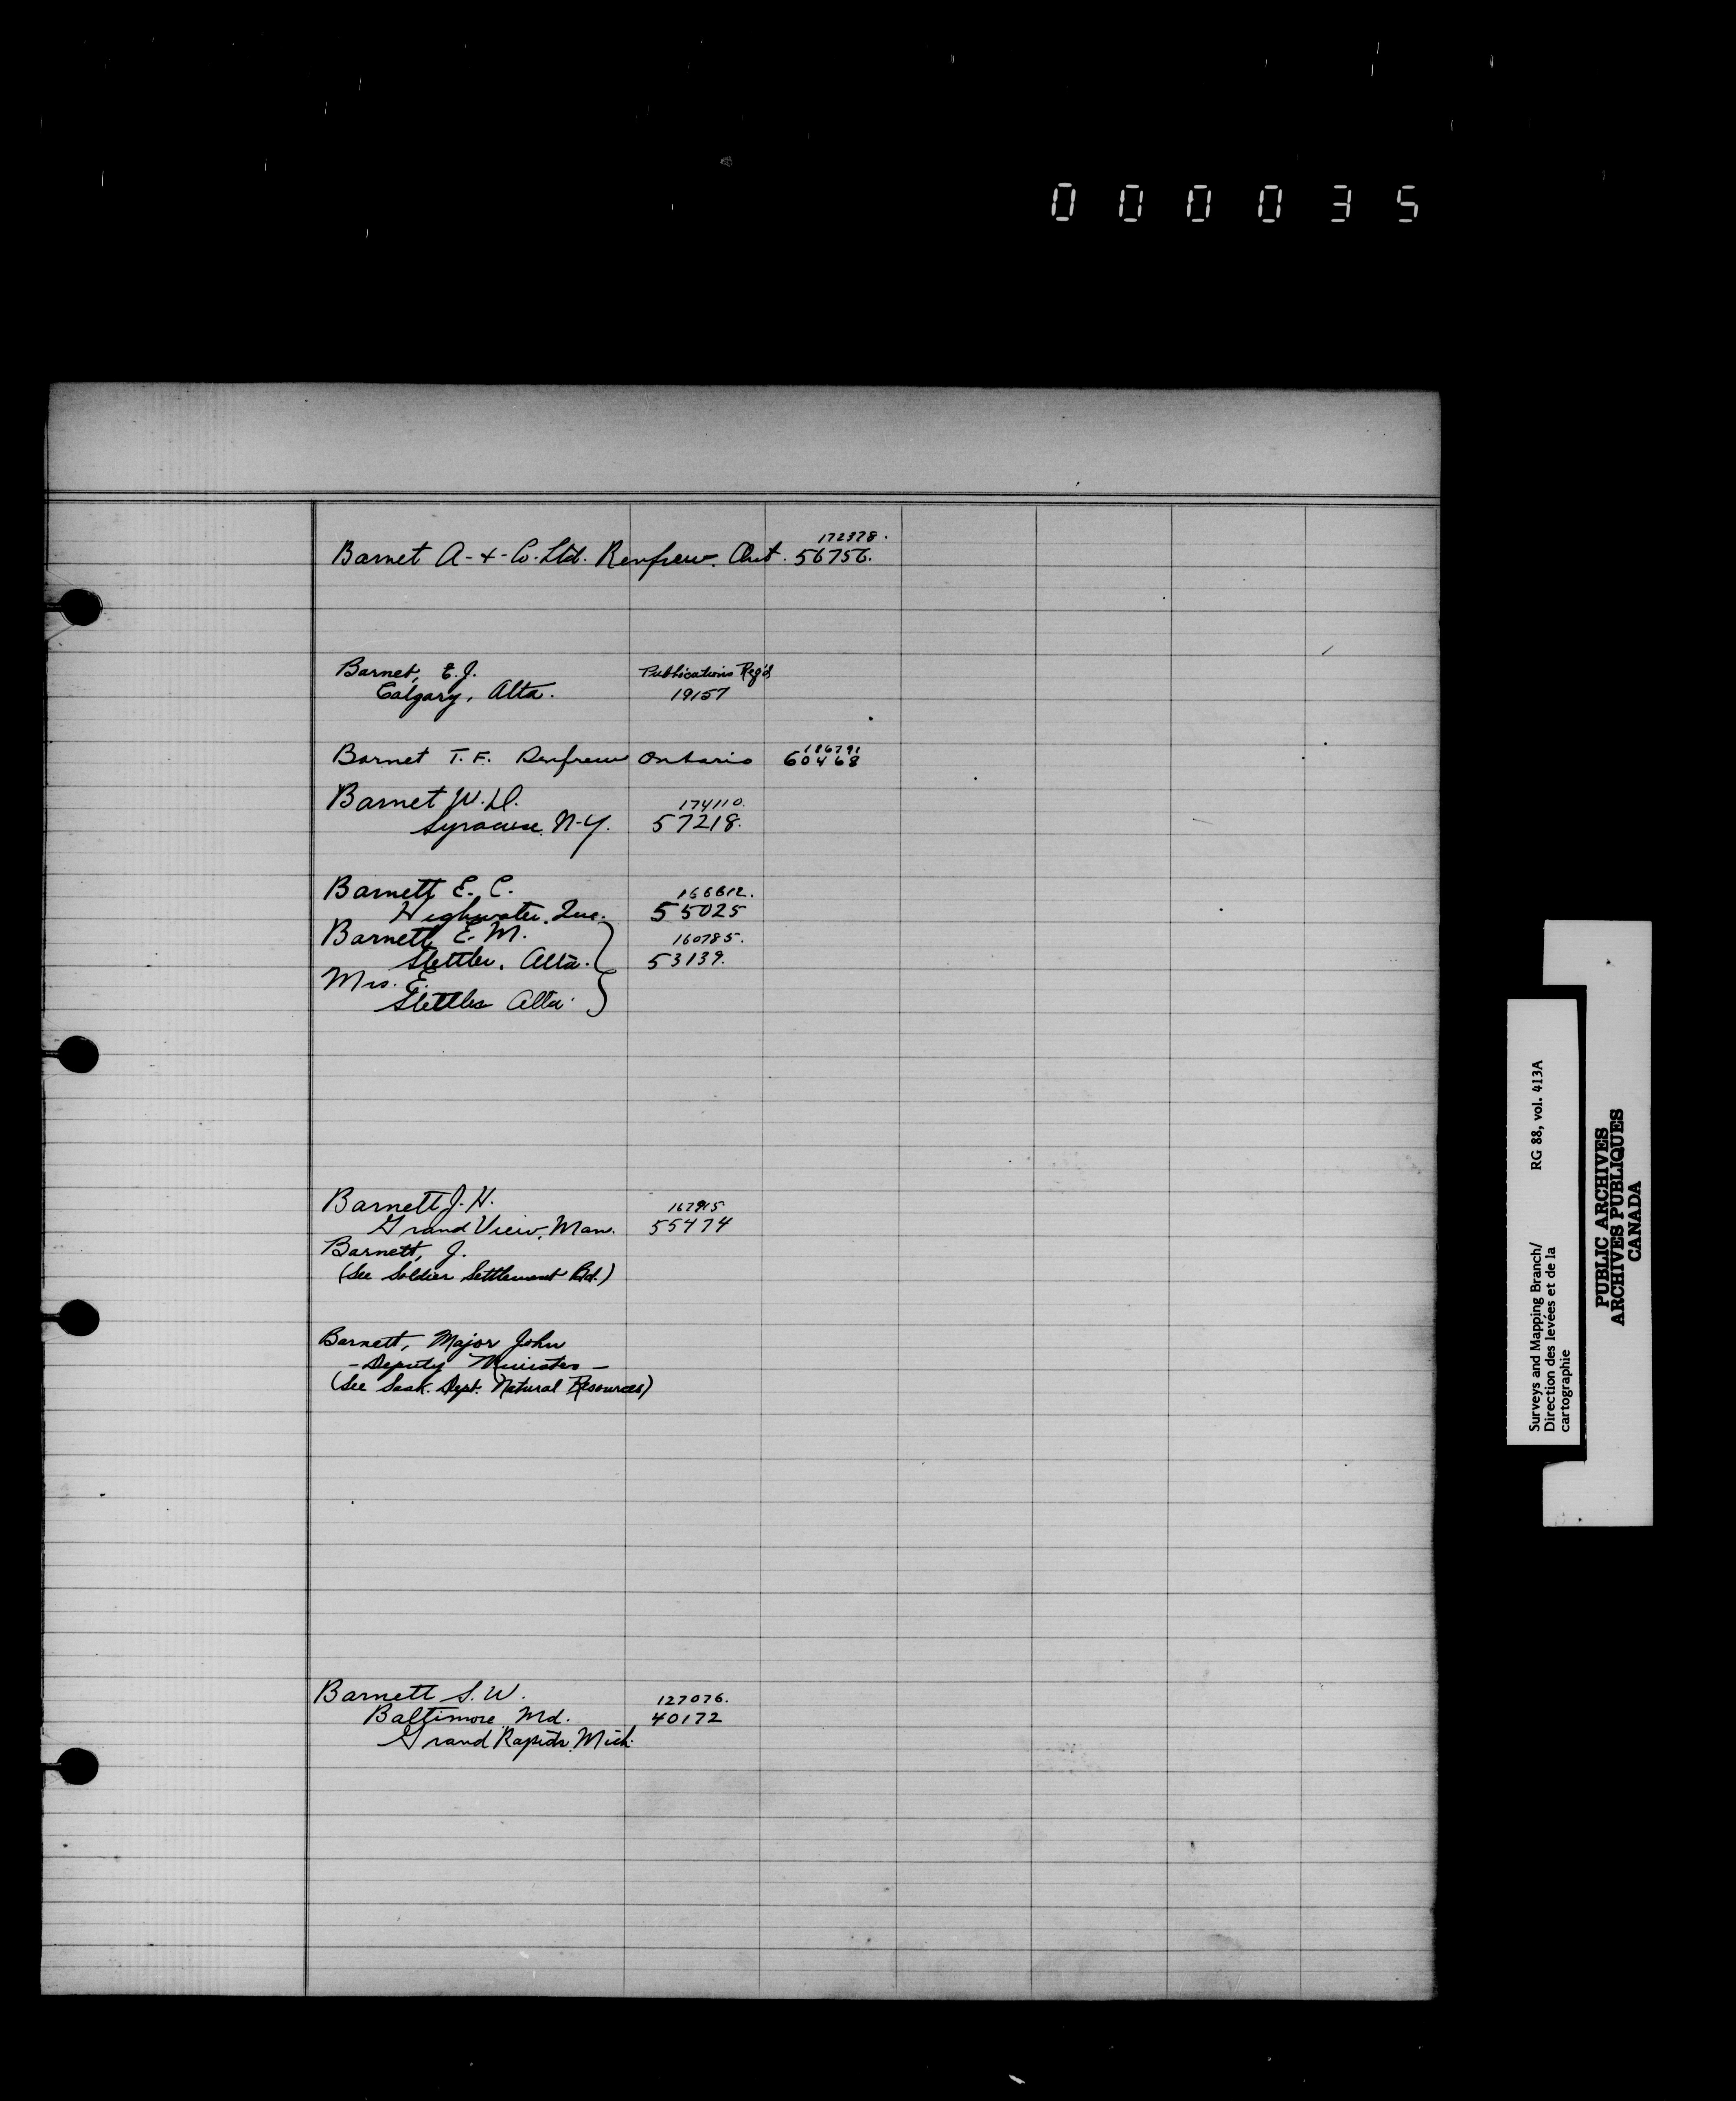 000035
172378.
Barnet A- & -Co. Ltd. Renfrew. Ont. 56756.
Barnet, E.J. Publications Reg'd
Calgary, Alta. 19157
186791
Barnet T. F. Renfrew Ontario 60468
Barnet W.D. 174110.
Syracuse. N-Y. 57218.
Barnett E. C. 166612.
Highwater. Que. 55025
Barnett E. M. 160785.
Stettler. Alta. 53139.
Mrs. E.
Stettler Alta.
Barnett J. H. 167915
Grand View, Man. 55474
Barnett, J.
(See Soldier Settlement Bd.)
Barnett, Major John
- Deputy Minister -
(See Sask. Dept. Natural Resources)
Barnett S. W. 127076.
Baltimore. Md. 40172
Grand Rapids. Mich.
Surveys and Mapping Branch/ RG 88, vol. 413A
Direction des levées et de la
cartographie
PUBLIC ARCHIVES
ARCHIVES PUBLIQUES
CANADA